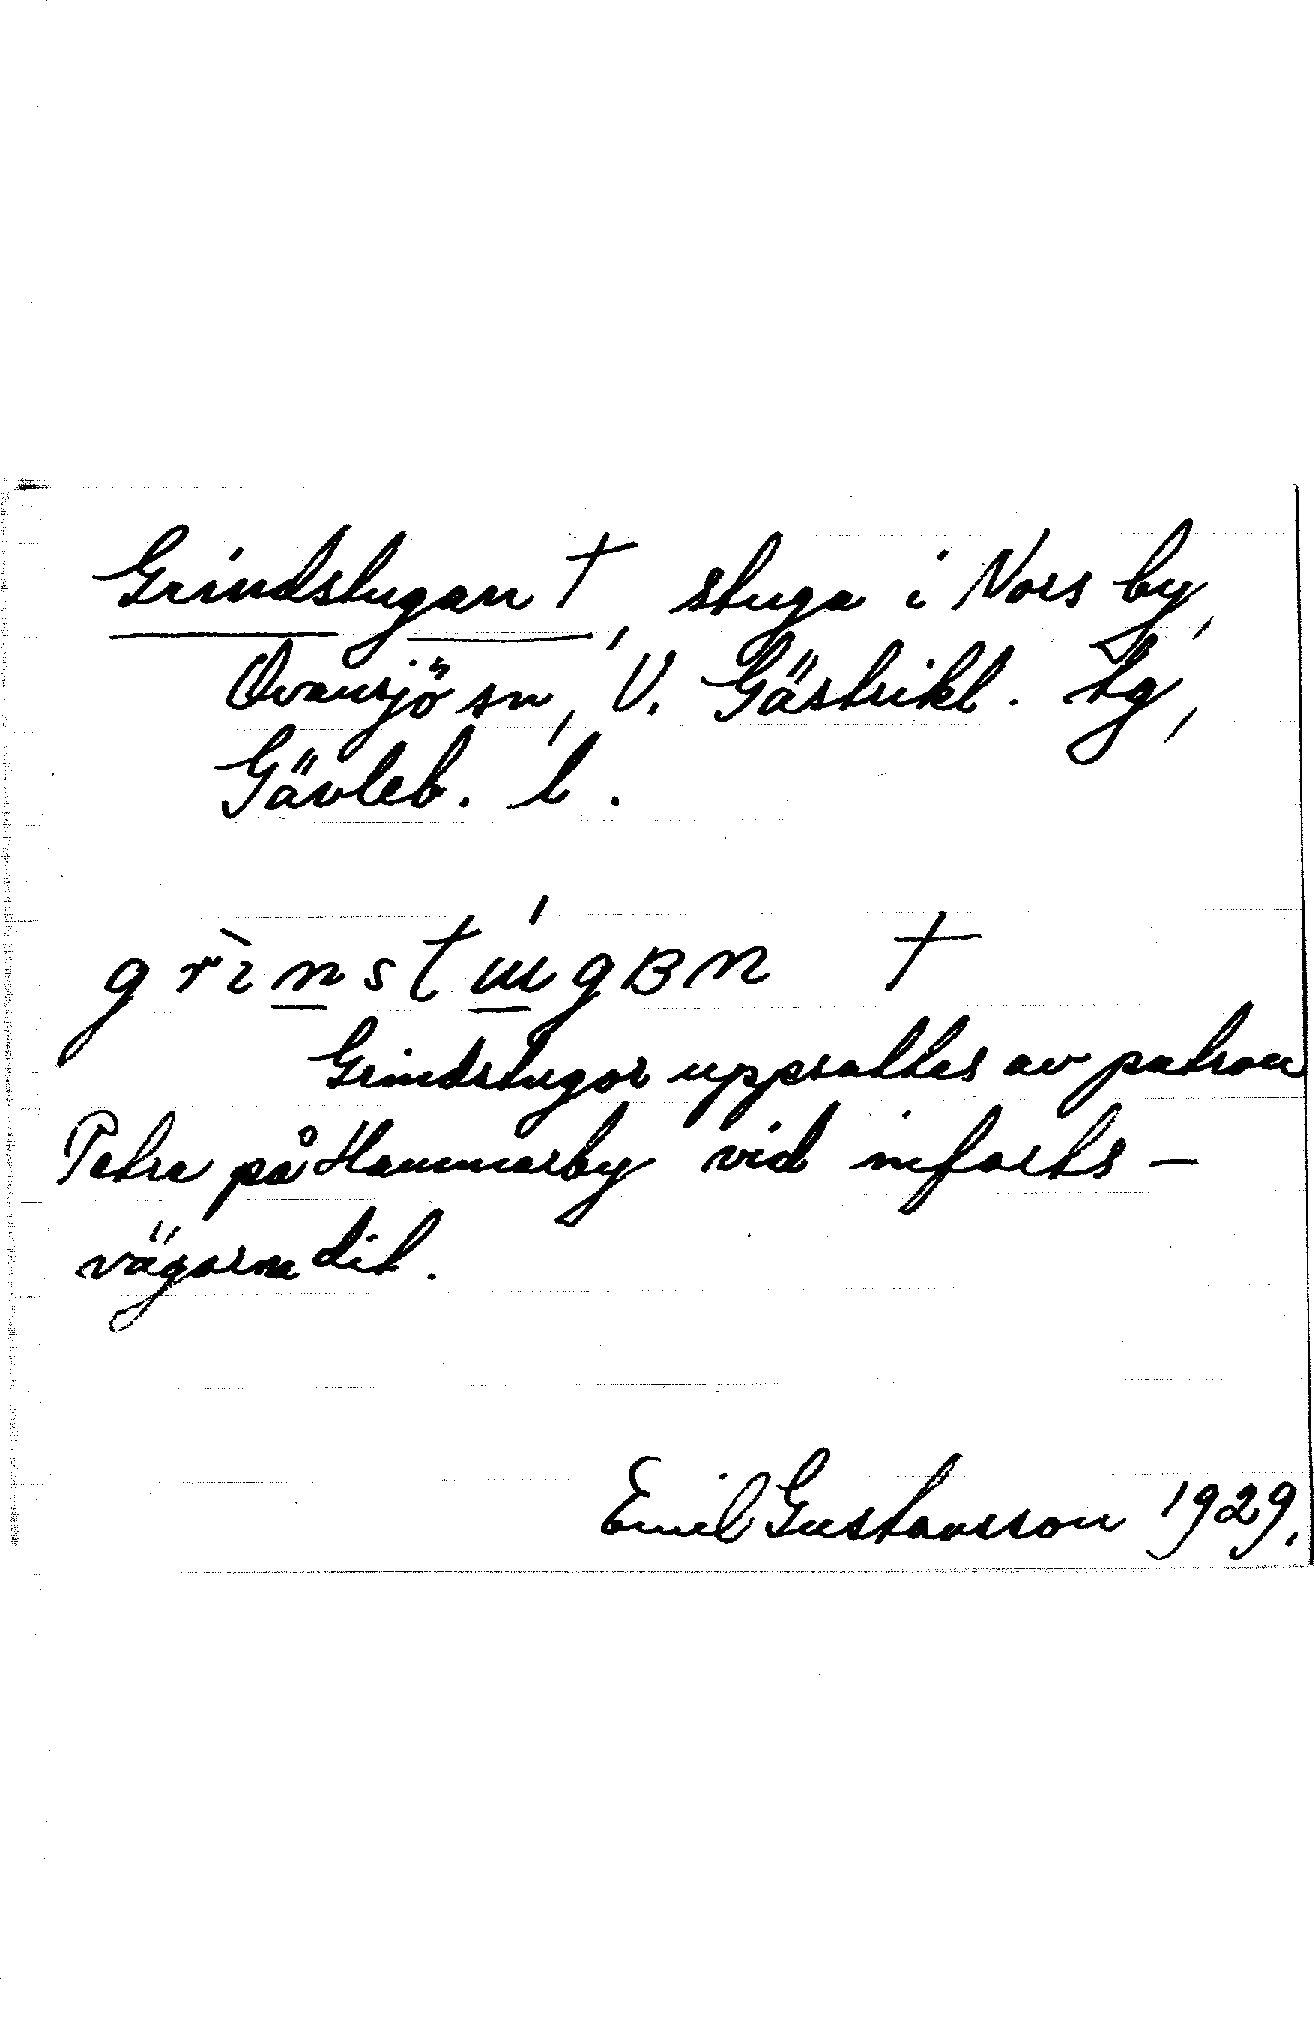 Grindstugan †, stuga i Nors by,
Ovansjö sn, V. Gästrikl. tg,
Gävleb. l.
grìnstúgʙn †
Grindstugor uppsattes av patron
Petre på Hammarby vid infarts-
vägarna dit.
Emil Gustavsson 1929.